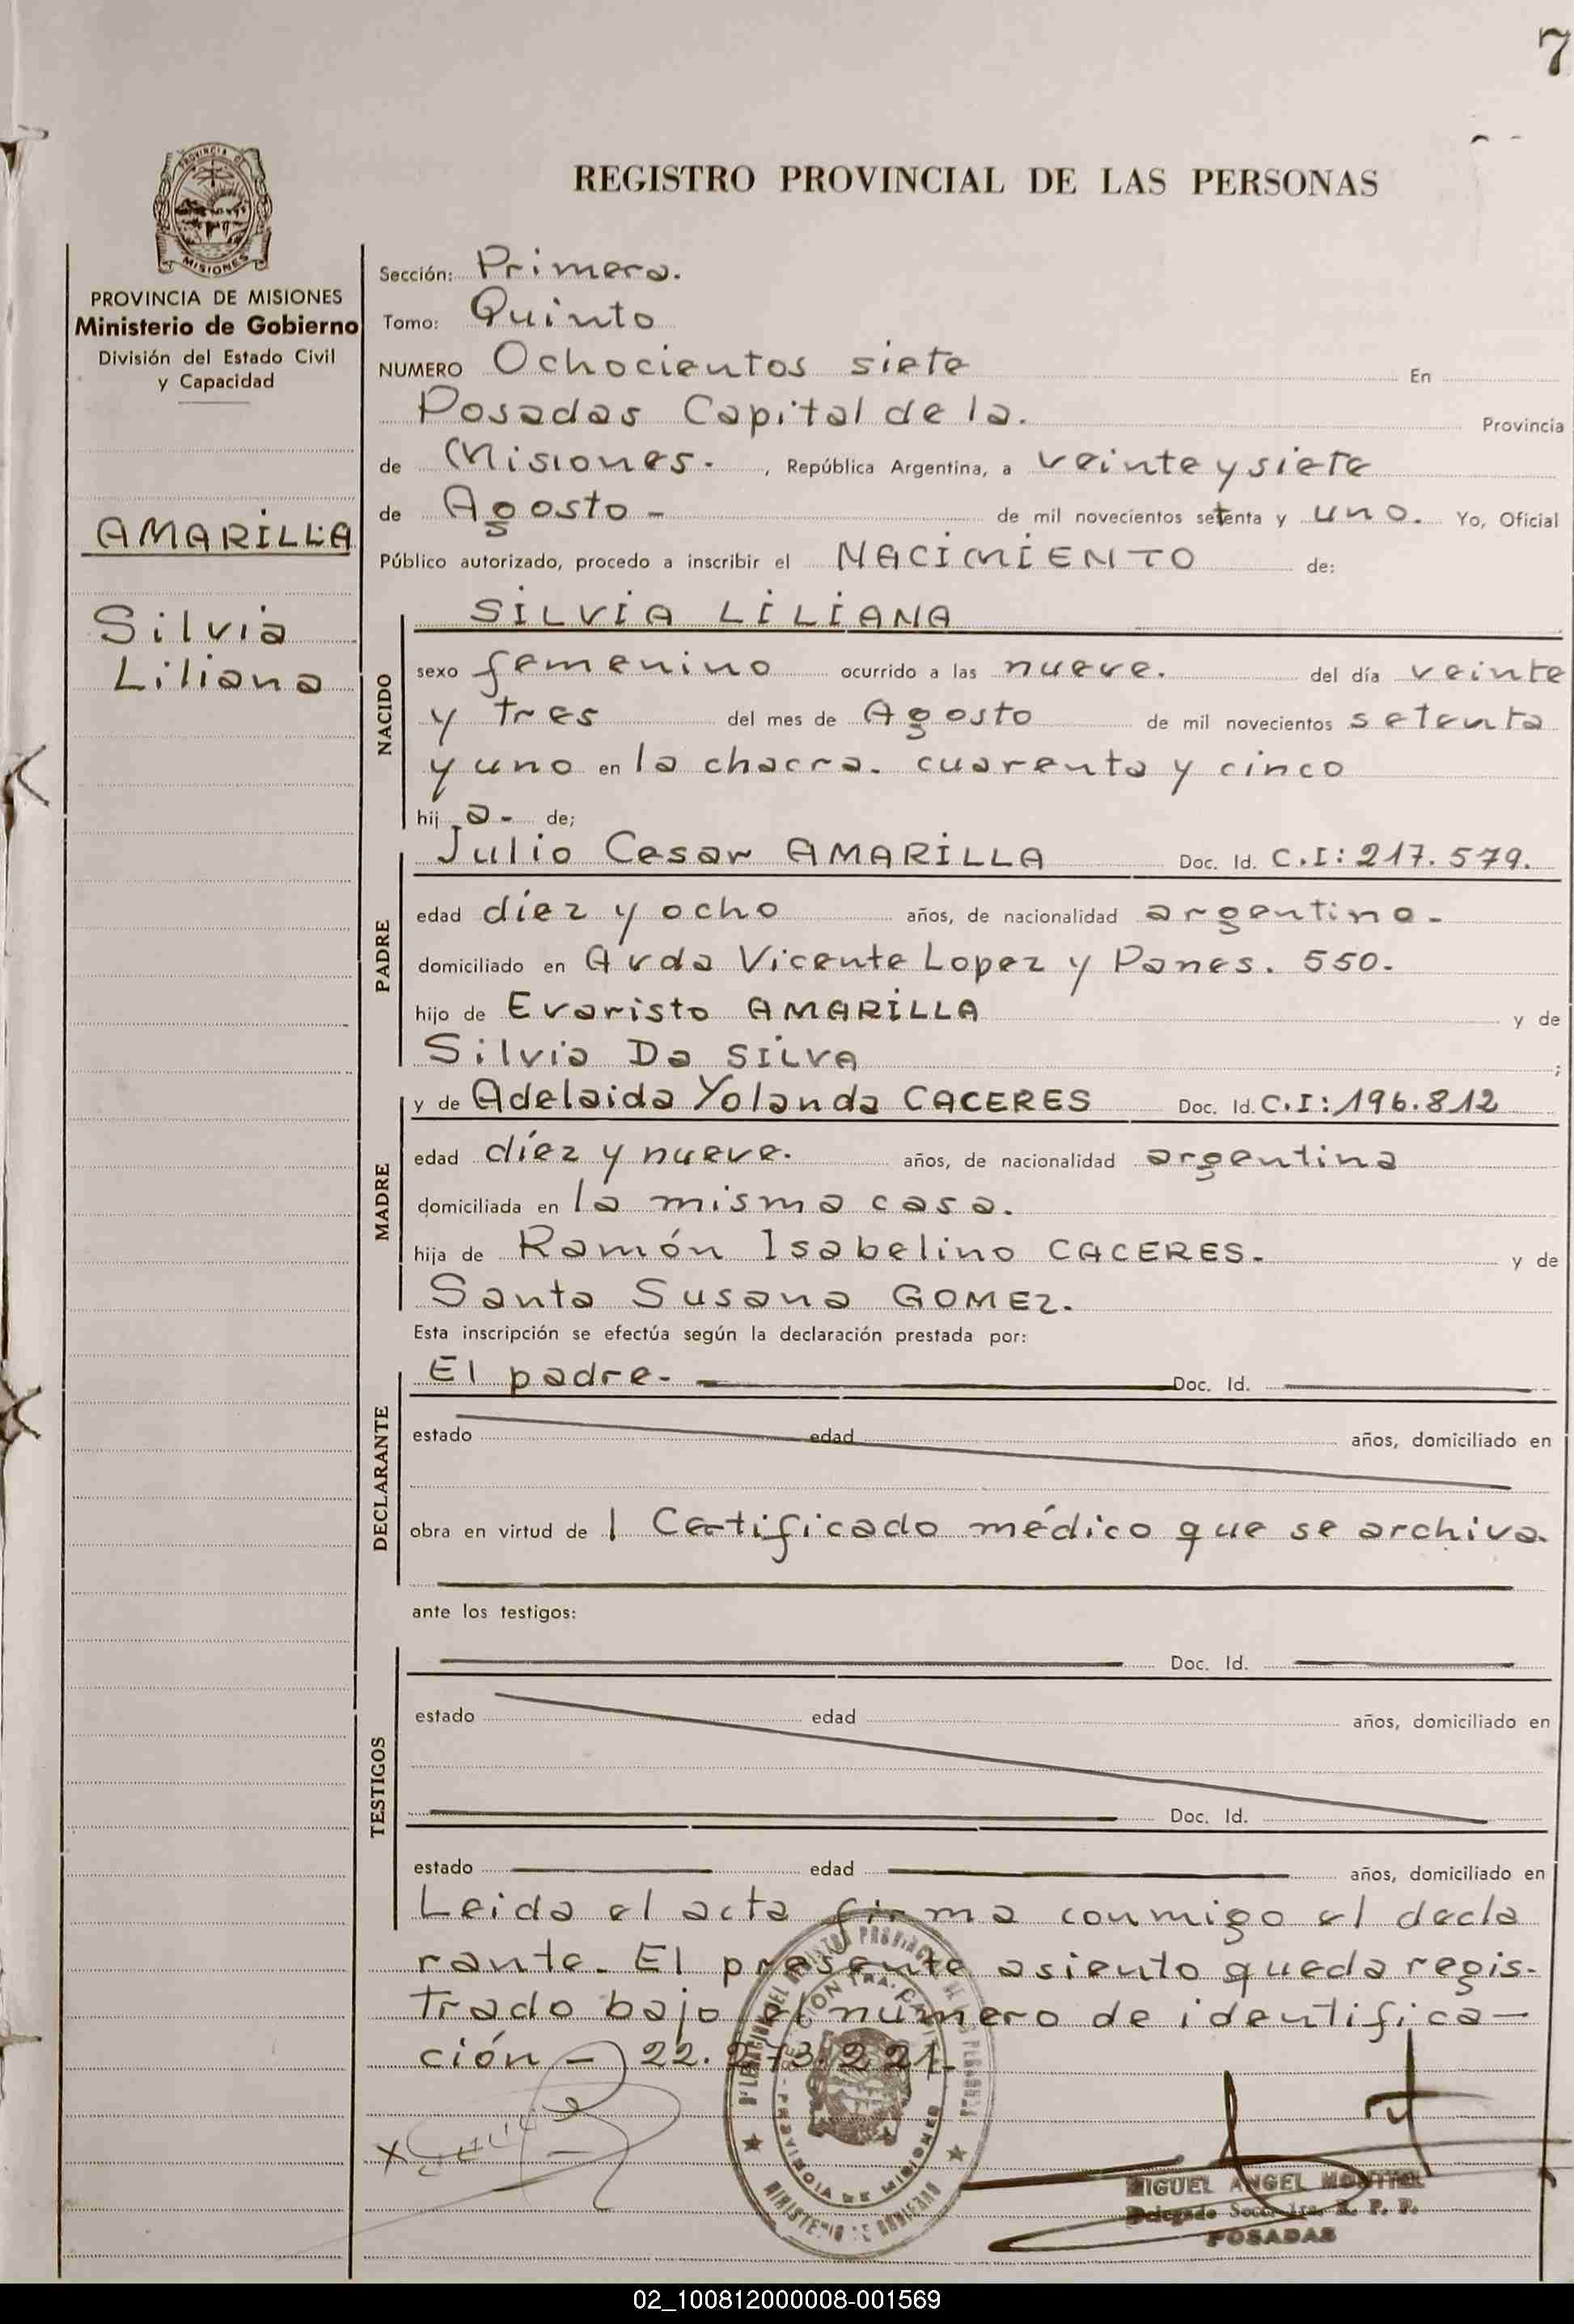 7
PROVINCIA DE
MISIONES
REGISTRO PROVINCIAL DE LAS PERSONAS
PROVINCIA DE MISIONES
Ministerio de Gobierno
División del Estado Civil
y Capacidad
AMARILLA
Silvia
Liliana
Sección: Primera.
Tomo: Quinto
NUMERO Ochocientos siete En
Posadas Capital de la. Provincia
de Misiones. , República Argentina, a veinte y siete
de Agosto - de mil novecientos setenta y uno. Yo, Oficial
Público autorizado, procedo a inscribir el NACIMIENTO de:
NACIDO
SILVIA LILIANA
sexo femenino ocurrido a las nueve. del día veinte
y tres del mes de Agosto de mil novecientos setenta
y uno en la chacra. cuarenta y cinco
hij a- de;
PADRE
Julio Cesar AMARILLA Doc. Id. C.I: 217.579.
edad diez y ocho años, de nacionalidad argentino-
domiciliado en Avda Vicente Lopez y Panes. 550.
hijo de Evaristo AMARILLA y de
Silvia Da SILVA ;
MADRE
y de Adelaida Yolanda CACERES Doc. Id. C.I: 196.812
edad diez y nueve. años, de nacionalidad argentina
domiciliada en la misma casa.
hija de Ramón Isabelino CACERES. y de
Santa Susana GOMEZ.
Esta inscripción se efectúa según la declaración prestada por:
DECLARANTE
El padre- Doc. Id.
estado edad años, domiciliado en
obra en virtud de 1 Certificado médico que se archiva.
ante los testigos:
TESTIGOS
Doc. Id.
estado edad años, domiciliado en
Doc. Id.
estado edad años, domiciliado en
Leida el acta firma conmigo el decla
rante. El presente asiento queda regis-
trado bajo el número de identifica-
ción - 22.273.221-
PROVINCIA DE MISIONES
MINISTERIO DE GOBIERNO
MIGUEL ANGEL MONTIEL
Delegado Secc. 1ra. R. P. P.
POSADAS
02_100812000008-001569